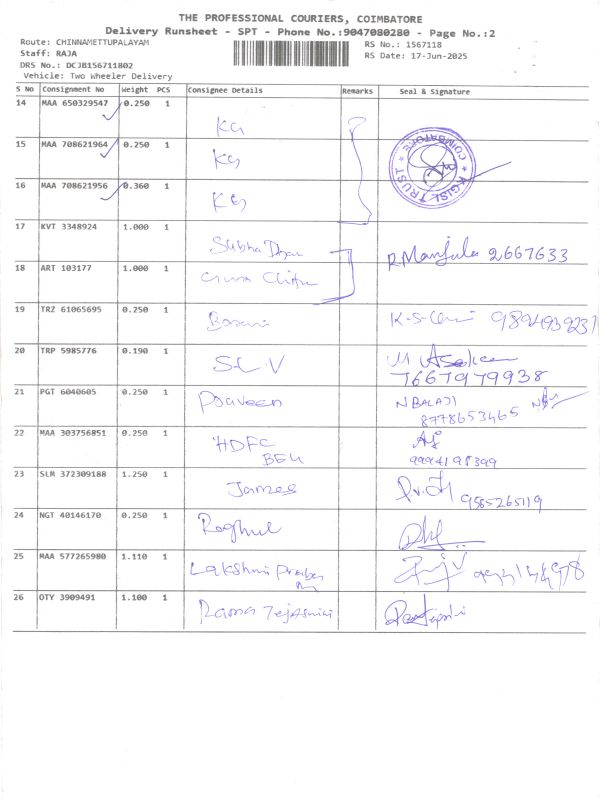 THE PROFESSIONAL COURIERS, COIMBATORE
Delivery Runsheet - SPT - Phone No.:9047080280 - Page No.:2
Route: CHINNAMETTUPALAYAM
RS No.: 1567118
Staff: RAJA
RS Date: 17-Jun-2025
DRS No.: DCJB156711802
Vehicle: Two Wheeler Delivery
S No Consignment No Weight PCS Consignee Details Remarks Seal & Signature
14 MAA 650329547 0.250 1 KG
15 MAA 708621964 0.250 1 KG
KGISL TRUST * COIMBATORE *
16 MAA 708621956 0.360 1 KG
17 KVT 3348924 1.000 1 Subha R.Manjula 2667633
18 ART 103177 1.000 1
19 TRZ 61065695 0.250 1 K.S.
20 TRP 5985776 0.190 1 S.L.V M
7667979938
21 PGT 6040605 0.250 1 Praveen N BALAJI
8778653465
22 MAA 303756851 0.250 1 HDFC
9994198399
23 SLM 372309188 1.250 1 James 9585265119
24 NGT 40146170 0.250 1 Raghul
25 MAA 577265980 1.110 1 Lakshmi
26 OTY 3909491 1.100 1 Rama Tejaswini